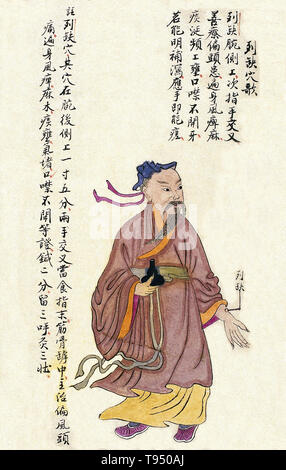 列缺穴歌
列缺腕側上次指手交叉
善療偏頭患遍身風痺麻
痰涎頻上壅口噤不開牙
若能明補瀉應手即能痊
註列缺穴其穴在腕後側上一寸五分兩手交叉當食指末筋骨罅中主治偏風頭
痛遍身風痺麻木痰壅氣堵口噤不開等證鍼二分留三呼灸三壯
列缺
alamy
Image ID: T950AJ
www.alamy.com